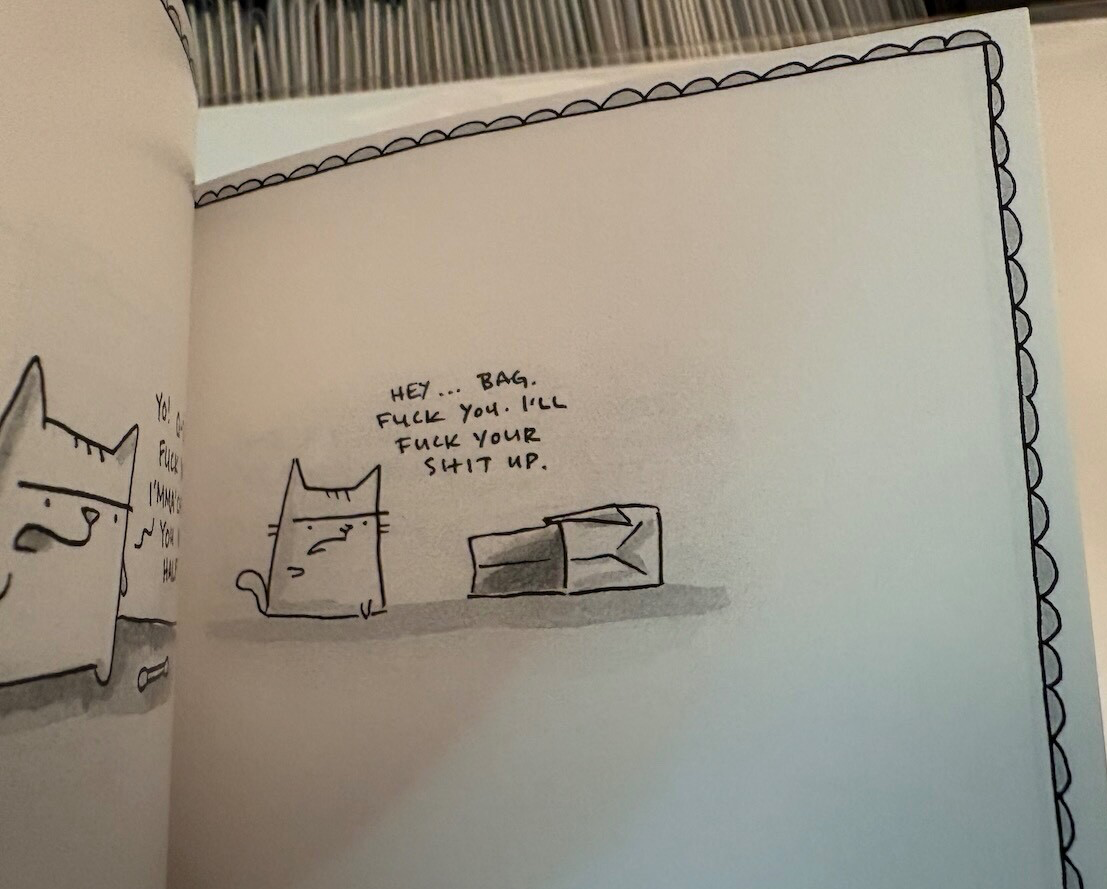 YO!
FUCK
I'MMA
YOU
HEY... BAG.
FUCK YOU. I'LL
FUCK YOUR
SHIT UP.